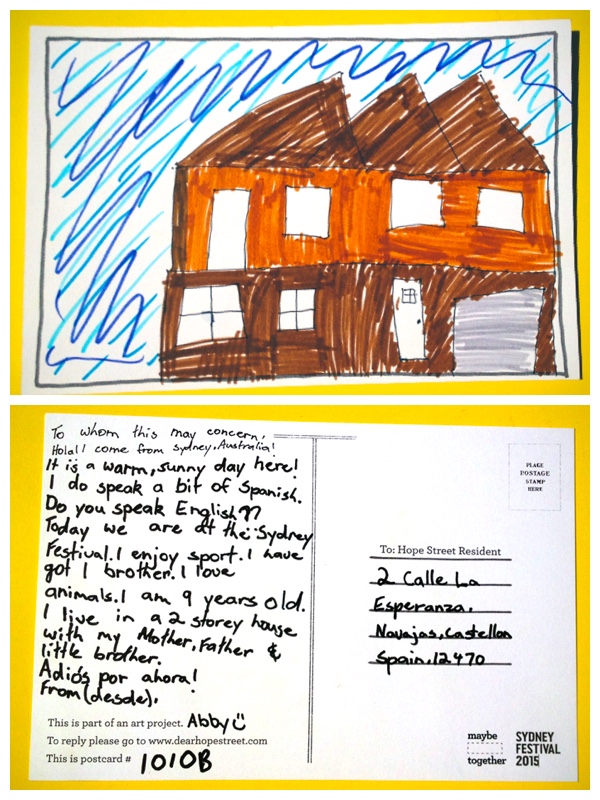 To whom this may concern,
Hola! I come from Sydney, Australia!
It is a warm, sunny day here!
I do speak a bit of Spanish.
Do you speak English??
Today we are at the: Sydney
Festival. I enjoy sport. I have
got 1 brother. I love
animals. I am 9 years old.
I live in a 2 storey house
with my Mother, Father &
little brother.
Adiós por ahora!
From (desde),
Abby
This is part of an art project.
To reply please go to www.dearhopestreet.com
This is postcard # 1010B
PLACE
POSTAGE
STAMP
HERE
To: Hope Street Resident
2 Calle La
Esperanza,
Navajas, Castellon
Spain, 12470
maybe
together
SYDNEY
FESTIVAL
2015